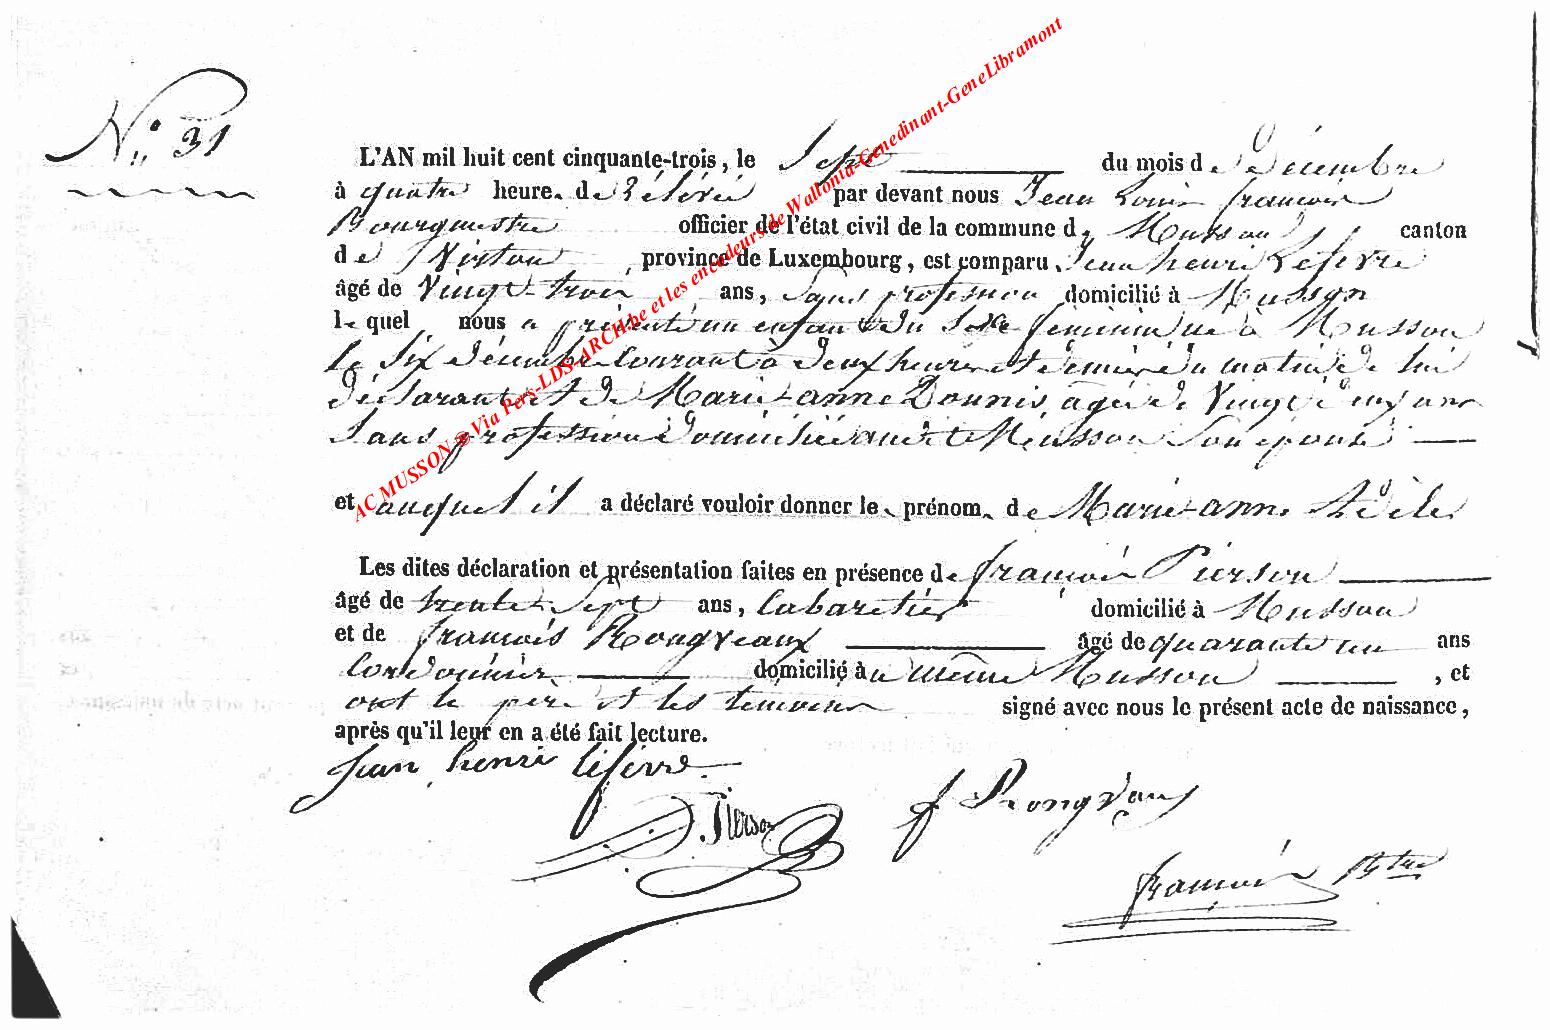 N.° 31
L'AN mil huit cent cinquante-trois, le Sept du mois de Décembre
à quatre heures de Rélévée par devant nous Jean Louis françois
Bourgmestre officier de l'état civil de la commune de Musson canton
de Virton province de Luxembourg, est comparu Jean henri Lefevre
âgé de Vingt-trois ans, Sans profession domicilié à Musson
lequel nous a présenté un enfant du Sexe feminin né à Musson
le Six décembre Courant à deux heures et demie du matin de lui
déclarant et de Marie-anne Dounis, agée de Vingt deux ans
Sans profession domiciliée audit Musson Son épouse
et auquel il a déclaré vouloir donner les prénoms de Marie-anne Adèle
Les dites déclaration et présentation faites en présence de françois Pierson
âgé de trente-Sept ans, Cabaretier domicilié à Musson
et de françois Rongveaux âgé de quarante un ans
Cordonnier domicilié à u même Musson, et
ont le père et les temoins signé avec nous le présent acte de naissance,
après qu'il leur en a été fait lecture.
Jean henri lefevre
Pierson
f Rongvaux
françois Btre
AC MUSSON @ Via Pers-LDS-ARCH.be et les encodeurs de Wallonia-Genedinant-GeneLibramont